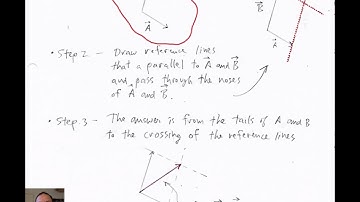 A
B
A
• Step 2 - Draw reference lines
that a parallel to A and B
and pass through the noses
of A and B.
• Step 3 - The answer is from the tails of A and B
to the crossing of the reference lines